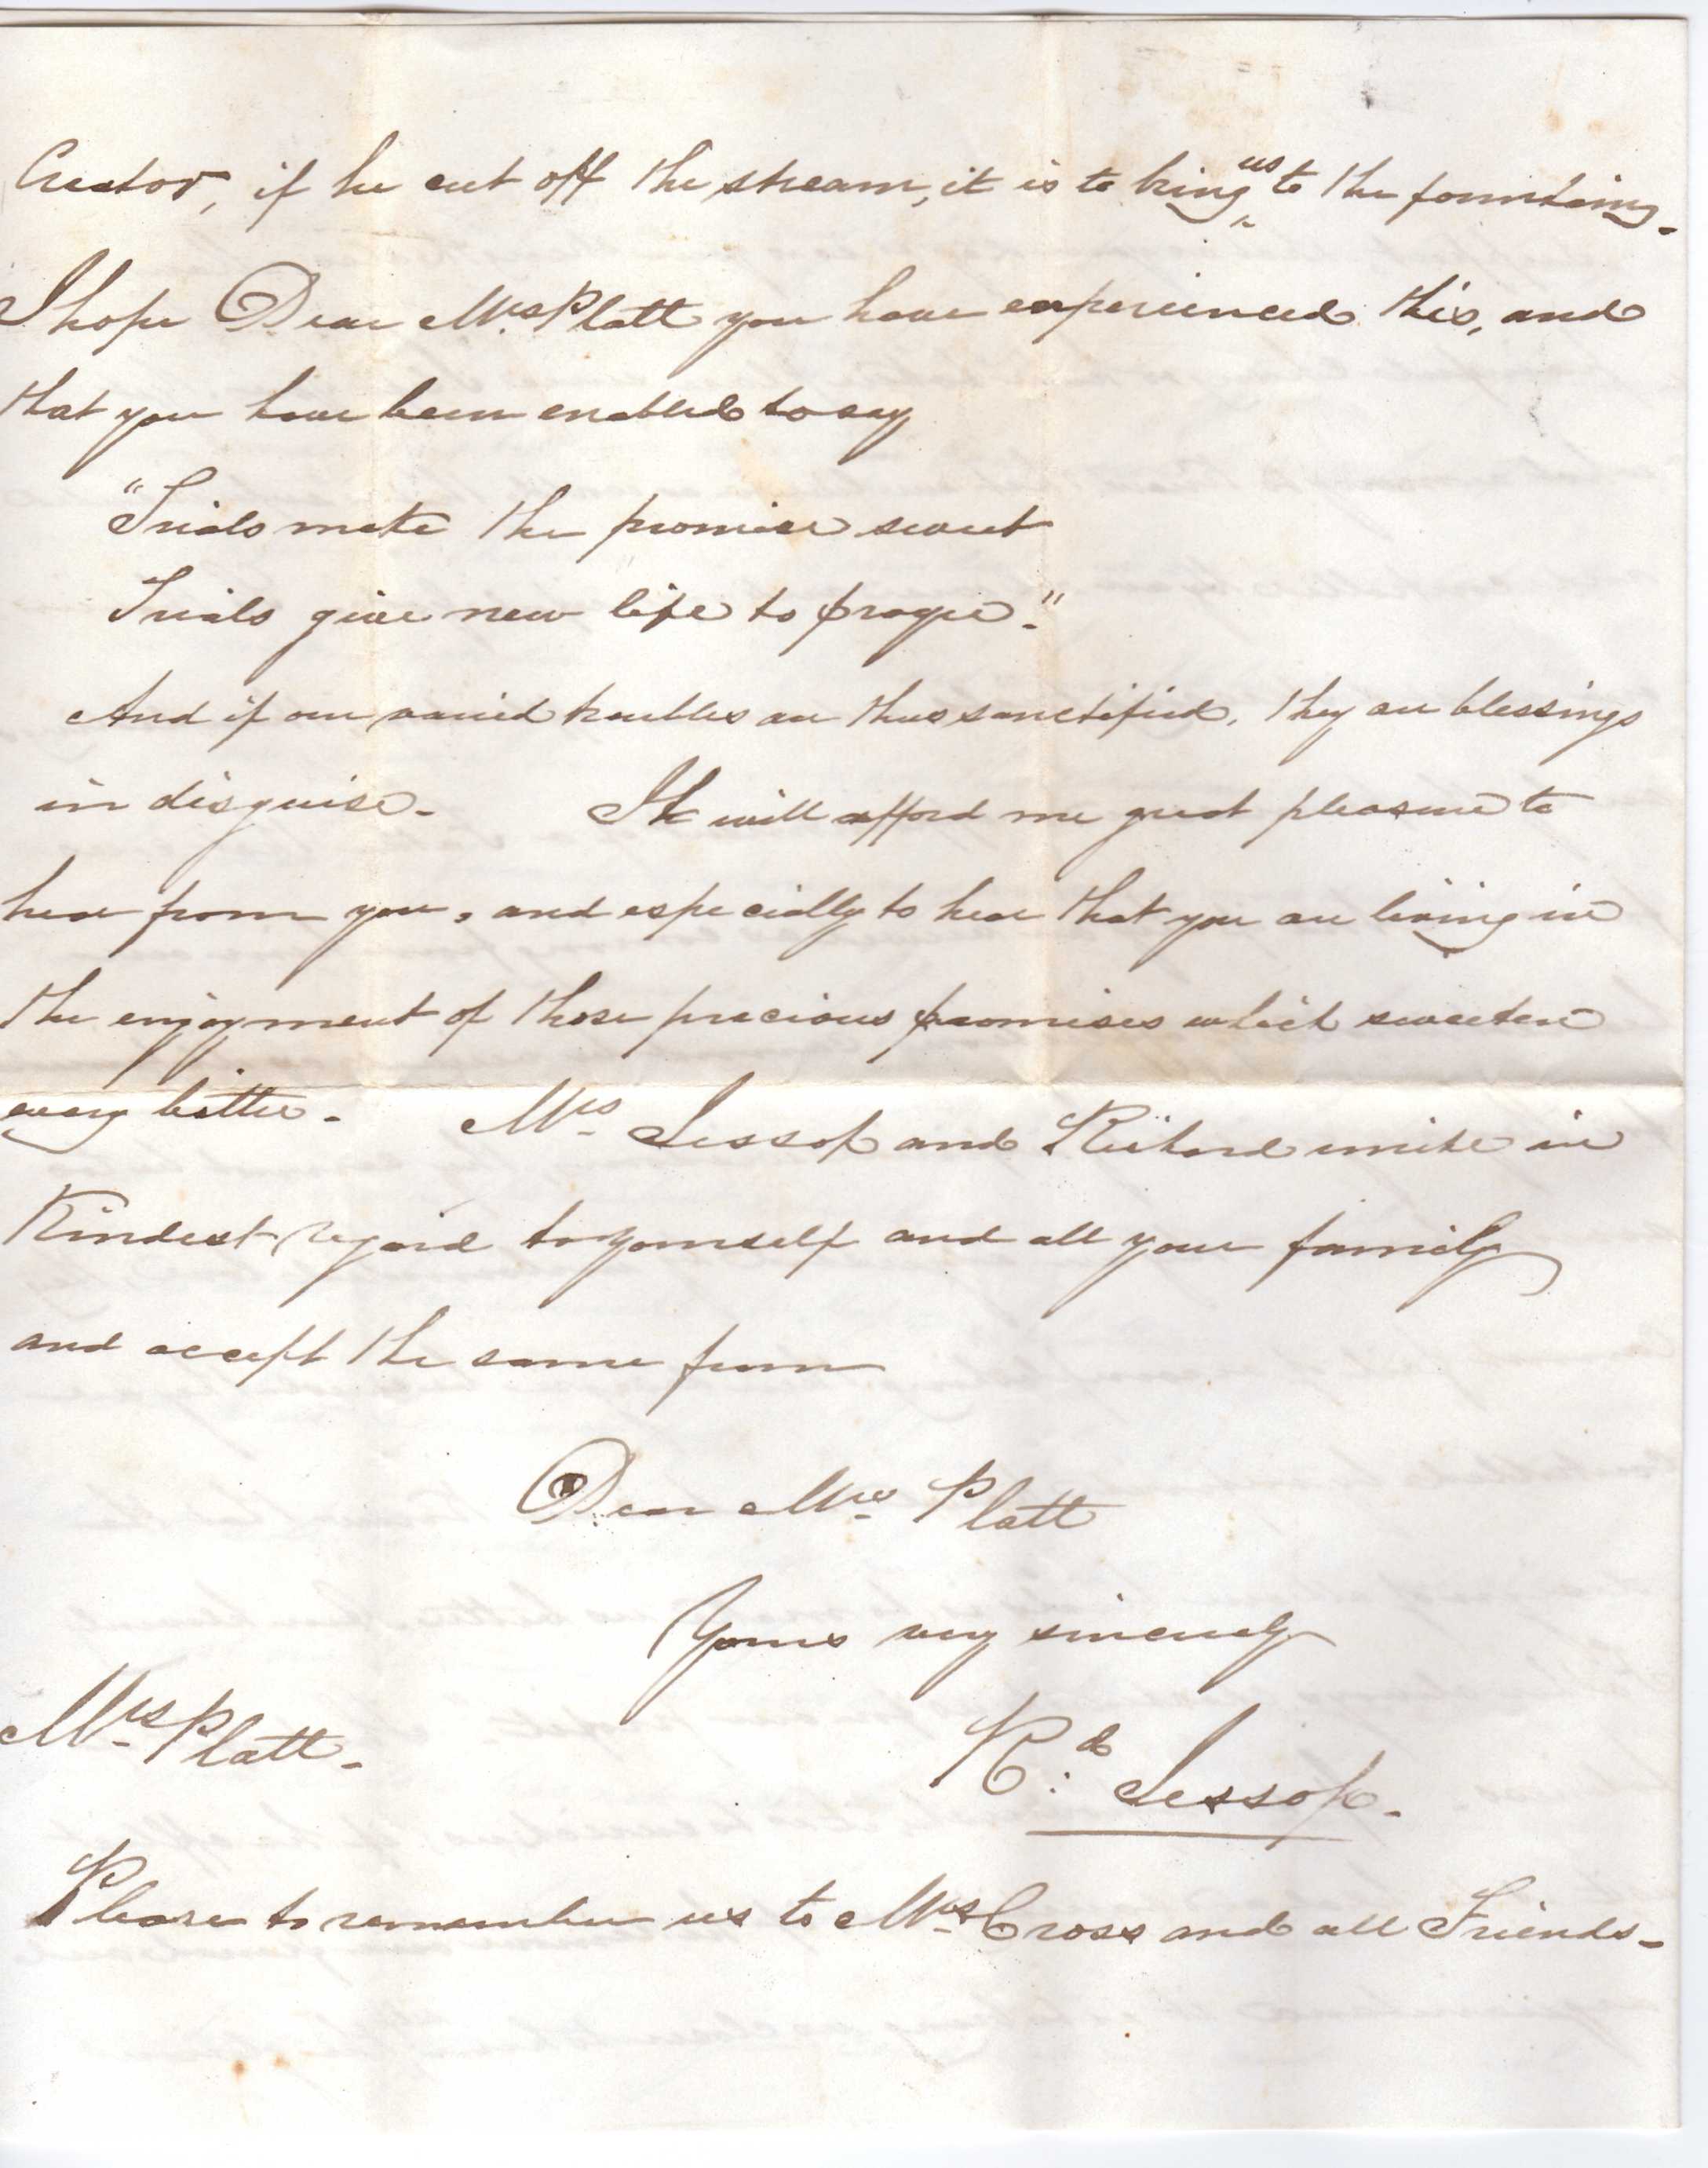 Creator, if he cut off the stream, it is to bring us to the fountaing.
I hope Dear Mrs Platt you have experienced this, and
that you have been enabled to say
"Trials make the promise sweet
Trials give new life to prayer."
And if our varied troubles are thus sanctified, they are blessings
in disguise. It will afford me great pleasure to
hear from you, and especially to hear that you are living in
the enjoyment of those precious promises which sweeten
every bitter. Mrs Jessop and Richard unite in
Kindest regard to yourself and all your family
and accept the same from
Dear Mrs Platt
Yours very sincerely
Mrs Platt.
Rd: Jessop.
Please to remember us to Mrs Cross and all Friends.